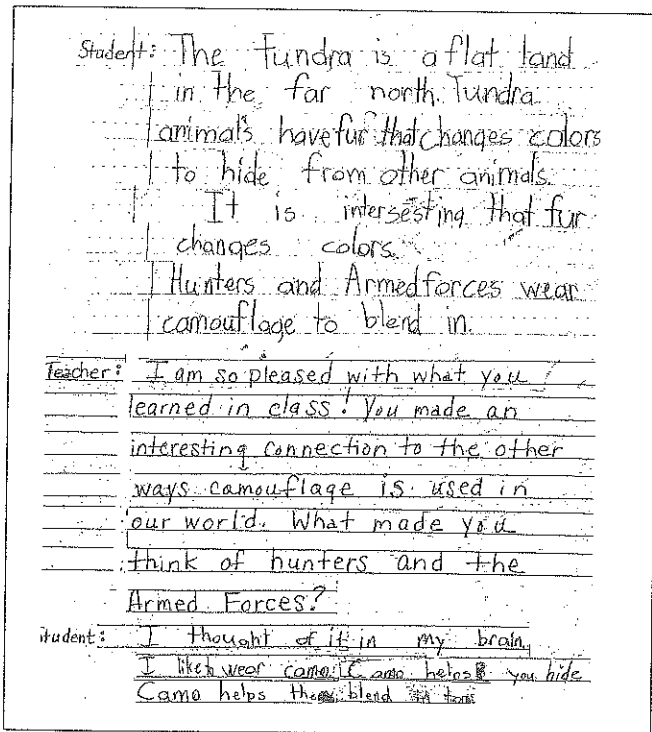 Student: The Tundra is a flat land
in the far north. Tundra
animals have fur that changes colors
to hide from other animals.
It is intersesting that fur
changes colors.
Hunters and Armed forces wear
camouflage to blend in.
Teacher: I am so pleased with what you
learned in class! You made an
interesting connection to the other
ways camouflage is used in
our world. What made you
think of hunters and the
Armed Forces?
student: I thought of it in my brain.
I like wear camo. Camo helps you hide
Camo helps them blend in too